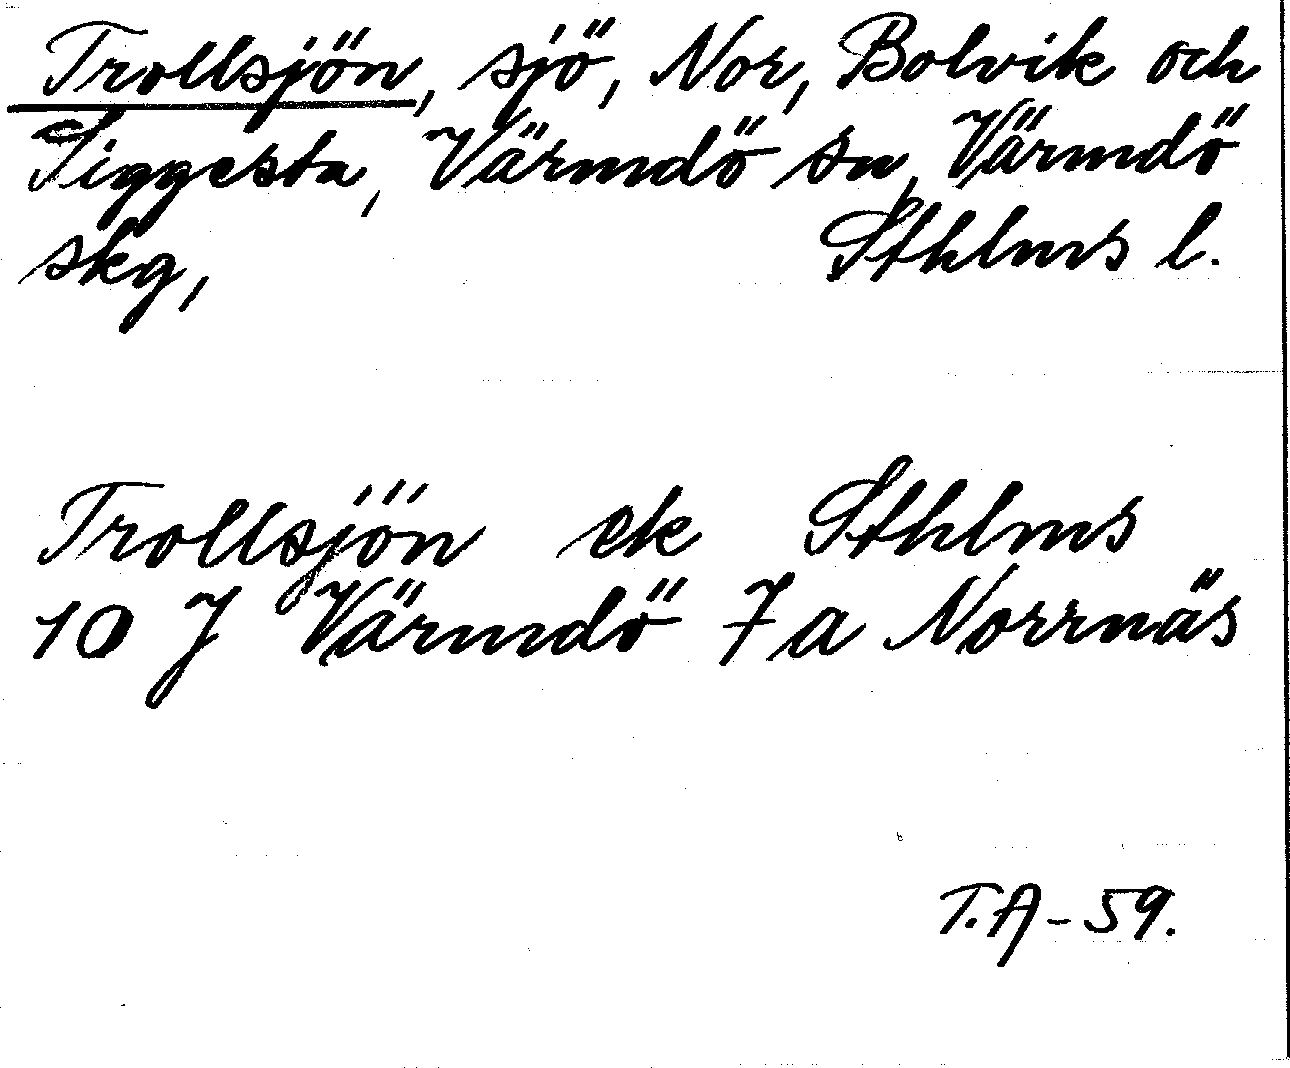 Trollsjön, sjö, Nor, Bolvik och
Siggesta, Värmdö sn, Värmdö
skg, Sthlms l.
Trollsjön ek Sthlms
10 J Värmdö 7a Norrnäs
T.A-59.